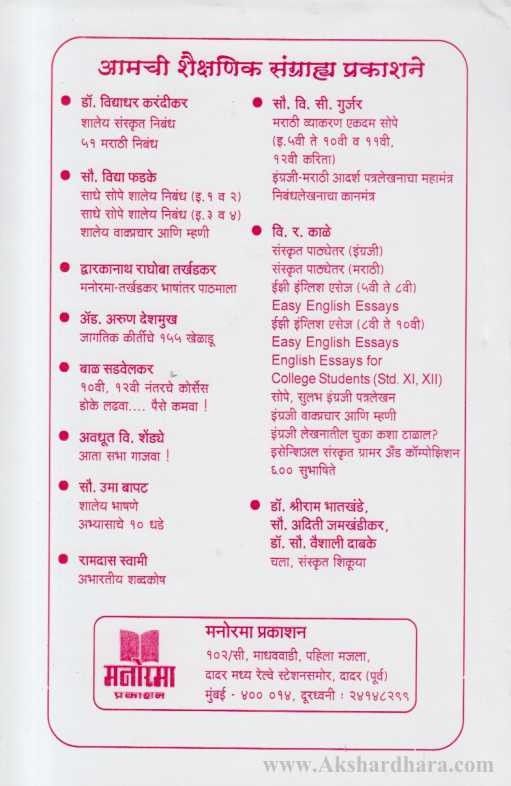 आमची शैक्षणिक संग्राह्य प्रकाशने
● डॉ. विद्याधर करंदीकर
शालेय संस्कृत निबंध
५१ मराठी निबंध
● सौ. विद्या फडके
साधे सोपे शालेय निबंध (इ.१ व २)
साधे सोपे शालेय निबंध (इ.३ व ४)
शालेय वाक्प्रचार आणि म्हणी
● द्वारकानाथ राघोबा तर्खडकर
मनोरमा-तर्खडकर भाषांतर पाठमाला
● ॲड. अरुण देशमुख
जागतिक कीर्तीचे १५५ खेळाडू
● बाळ सडवेलकर
१०वी, १२वी नंतरचे कोर्सेस
डोके लढवा.... पैसे कमवा !
● अवधूत वि. शेंड्ये
आता सभा गाजवा !
● सौ. उमा बापट
शालेय भाषणे
अभ्यासाचे १० धडे
● रामदास स्वामी
अभारतीय शब्दकोष
● सौ. वि. सी. गुर्जर
मराठी व्याकरण एकदम सोपे
(इ.५वी ते १०वी व ११वी,
१२वी करिता)
इंग्रजी-मराठी आदर्श पत्रलेखनाचा महामंत्र
निबंधलेखनाचा कानमंत्र
● वि. र. काळे
संस्कृत पाठ्येतर (इंग्रजी)
संस्कृत पाठ्येतर (मराठी)
ईझी इंग्लिश एसेज (५वी ते ८वी)
Easy English Essays
ईझी इंग्लिश एसेज (८वी ते १०वी)
Easy English Essays
English Essays for
College Students (Std. XI, XII)
सोपे, सुलभ इंग्रजी पत्रलेखन
इंग्रजी वाक्प्रचार आणि म्हणी
इंग्रजी लेखनातील चुका कशा टाळाल?
इसेन्शिअल संस्कृत ग्रामर अँड कॉम्पोझिशन
६०० सुभाषिते
● डॉ. श्रीराम भातखंडे,
सौ. अदिती जमखंडीकर,
डॉ. सौ. वैशाली दाबके
चला, संस्कृत शिकूया
मनोरमा
प्रकाशन
मनोरमा प्रकाशन
१०२/सी, माधववाडी, पहिला मजला,
दादर मध्य रेल्वे स्टेशनसमोर, दादर (पूर्व)
मुंबई - ४०० ०१४, दूरध्वनी : २४१४८२९९
www.Akshardhara.com